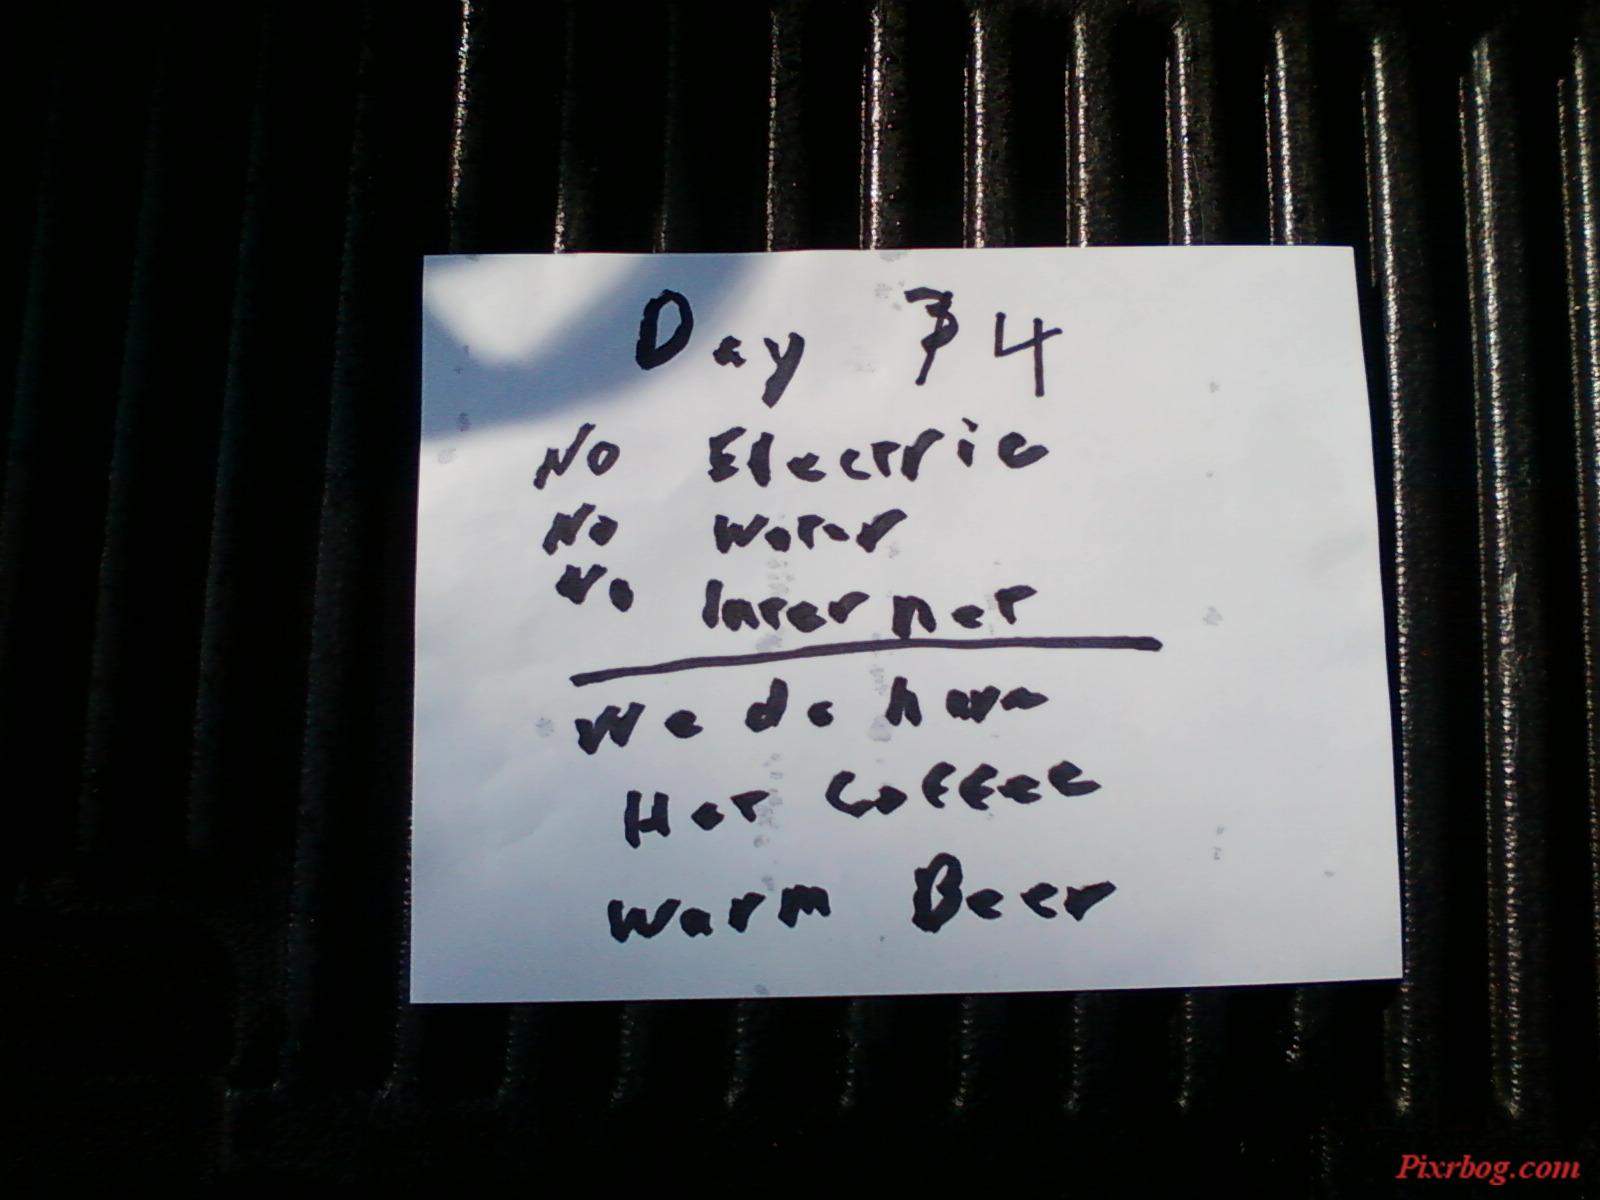 Day 3 4
No Electric
No Water
No Internet
We do have
Hot Coffee
Warm Beer
Pixrbog.com